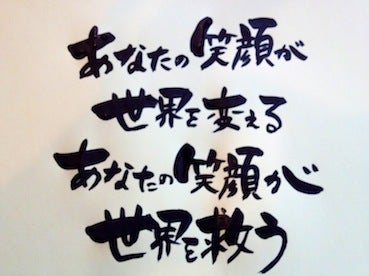 あなたの笑顔が
世界を変える
あなたの笑顔が
世界を救う